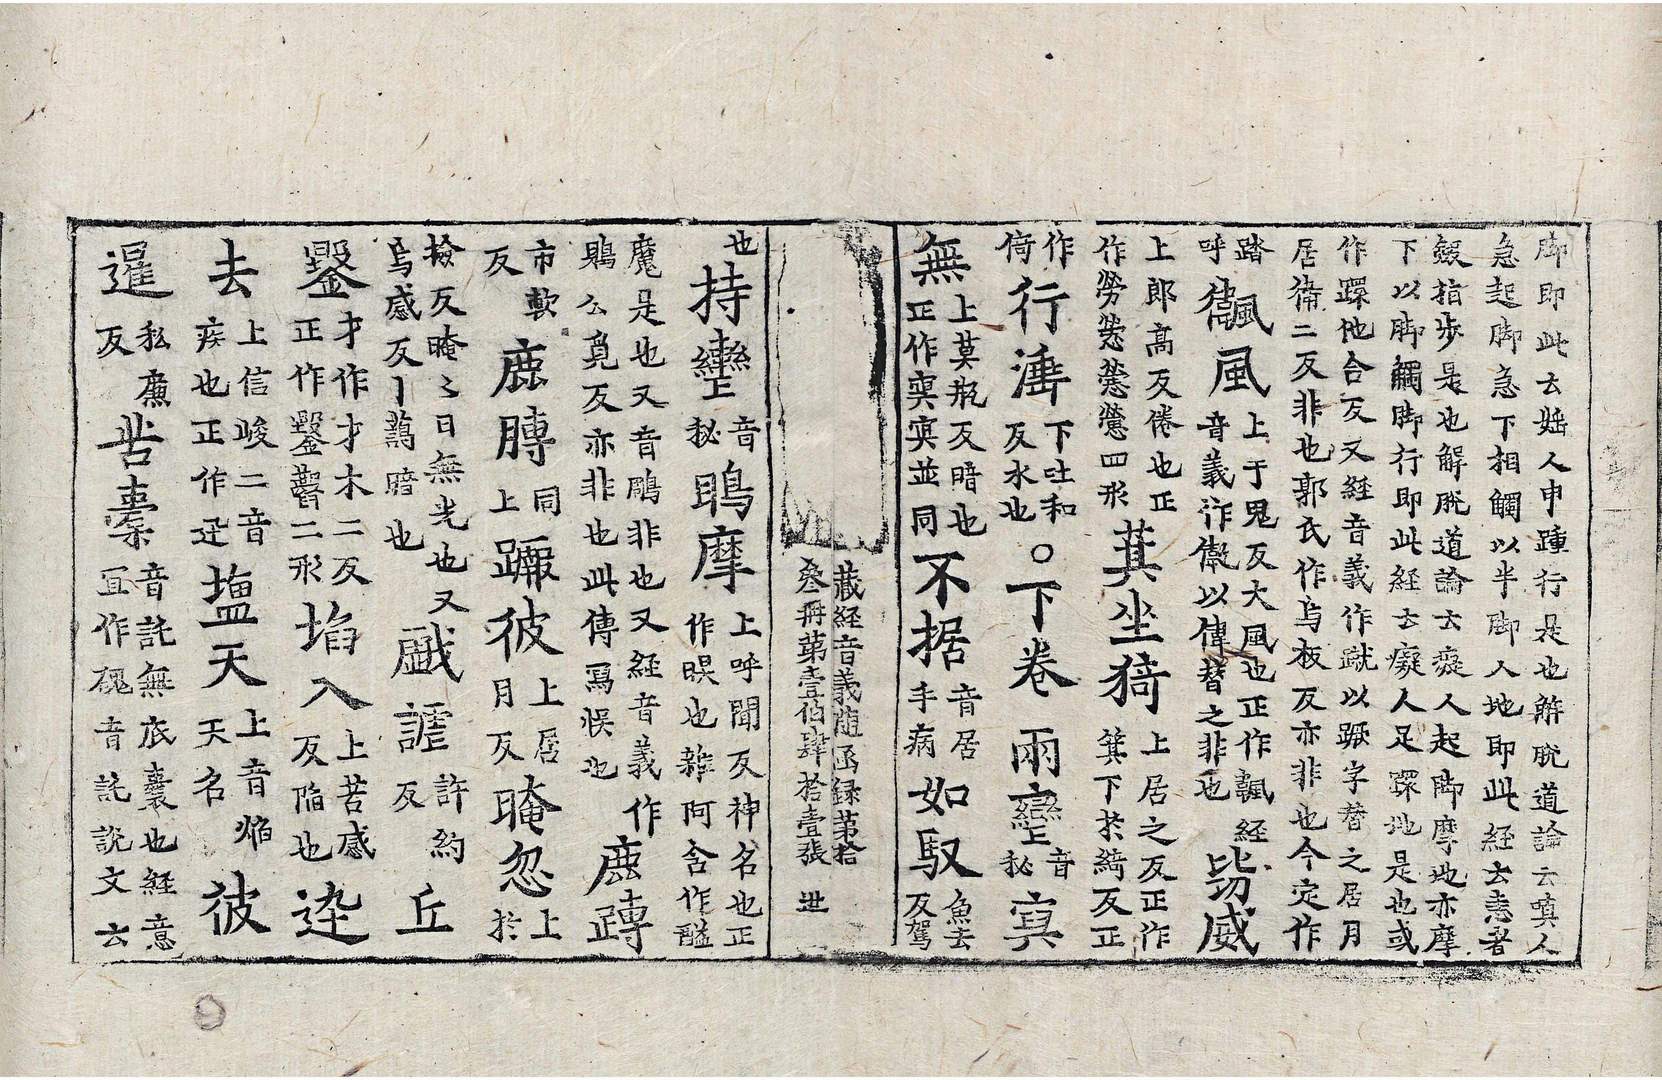 脚即此去𡱝人申踵行是也觧脫道論云嗔人
急起脚急下相觸以半脚人地即此經去恚者
𣫍指步是也解脫道論云癡人起脚摩地亦摩
下以脚觸脚行即此經去癡人足蹀地是也或
作蹀他合反又經音義作蹴以蹶字替之居月
居衞二反非也郭氏作烏板反亦非也今定作
踏呼
風上于鬼反大風也正作颽經音義作㒜以偉替之非也
呰威
上郎高反倦也正作勞憥㦃𢥒四形
萁坐猗上居之反正作箕下扵綺反正作
侍行涶下吐和反水也○下卷兩𡔞音秘㝠
無上莫瓶反暗也正作㝠冥並同不据音居手病如馭魚去反駕
藏經音義随函録第拾
叁冊第壹伯肆拾壹張 㳬
也持𡔞音秘鴡摩上呼聞反神名也正作睽也雜阿含作醯
魔是也又音鵰非也又經音義作
鵙公覓反亦非也此傳寫悞也
鹿䠦
市軟反鹿膞同上蹍彼上居月反晻忽上扵
撿反晻〻日無光也又烏感反丨藹暗也
戱謔許約反丘
鑿才作才木二反正作鑿二形埳入上苦感反陷也迯
去上信峻二音疾也正作迅塭天上音焔天名彼
暹私廉反
苦橐音託無底囊也經意宜作䰟音託說文云